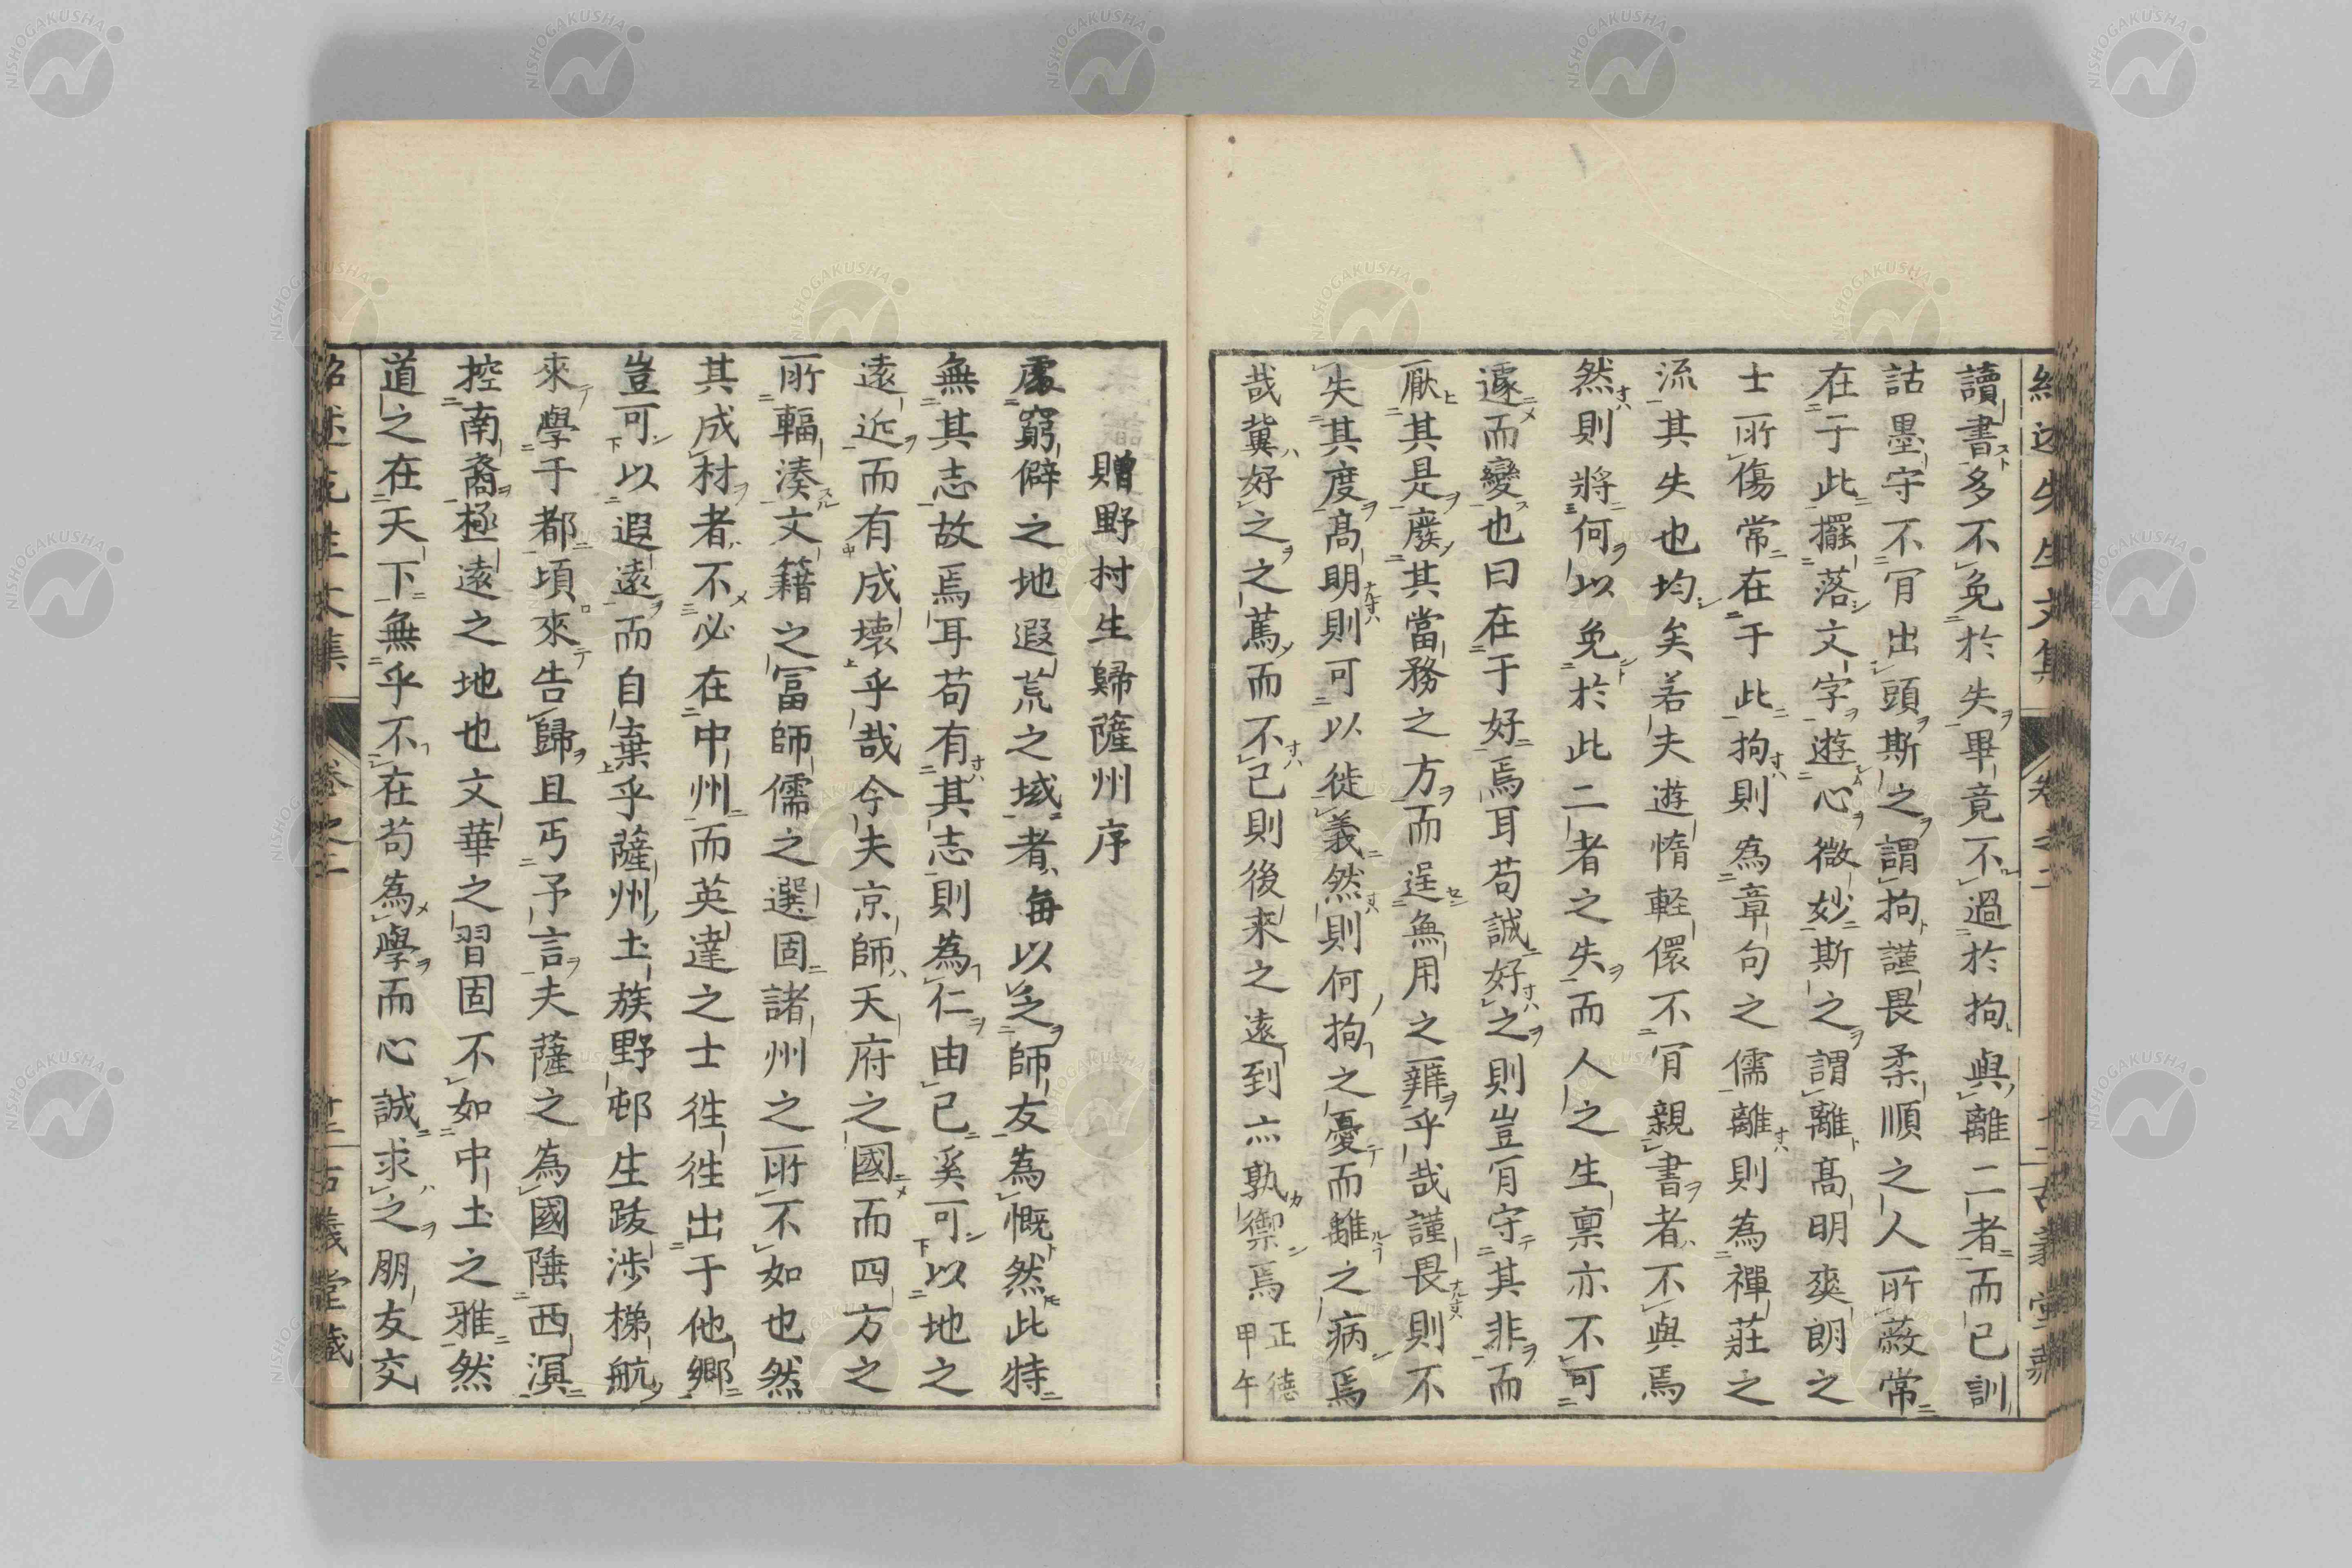 讀書多不免於失畢竟不過於拘與離二者而已訓
詁墨守不肎出頭斯之謂拘謹畏柔順之人所蔽常
在于此擺落文字遊心微妙斯之謂離髙明爽朗之
士所傷常在于此拘則為章句之儒離則為禪莊之
流其失也均矣若夫遊惰輕儇不肎親書者不與焉
然則將何以免於此二者之失而人之生稟亦不可
遽而變也曰在于好焉耳苟誠好之則豈肎守其非而
厭其是廢其當務之方而逞無用之辨乎哉謹畏則不
失其度髙明則可以徙義然則何拘之憂而離之病焉
哉冀好之之蔫而不已則後来之遠到亦孰禦焉
正德
甲午
贈野村生歸薩州序
處窮僻之地遐荒之域者每以乏師友為慨然此特
無其志故焉耳苟有其志則為仁由己奚可以地之
遠近而有成壊乎哉今夫京師天府之國而四方之
所輻湊文籍之冨師儒之選固諸州之所不如也然
其成材者不必在中州而英達之士徃徃出于他郷
豈可以遐遠而自棄乎薩州士族野邨生跋涉梯航
來學于都頃來告歸且丐予言夫薩之為國陲西溟
控南裔極遠之地也文華之習固不如中土之雅然
道之在天下無乎不在苟為學而心誠求之朋友交
紹述先生文集
卷之二
十二
古義堂藏